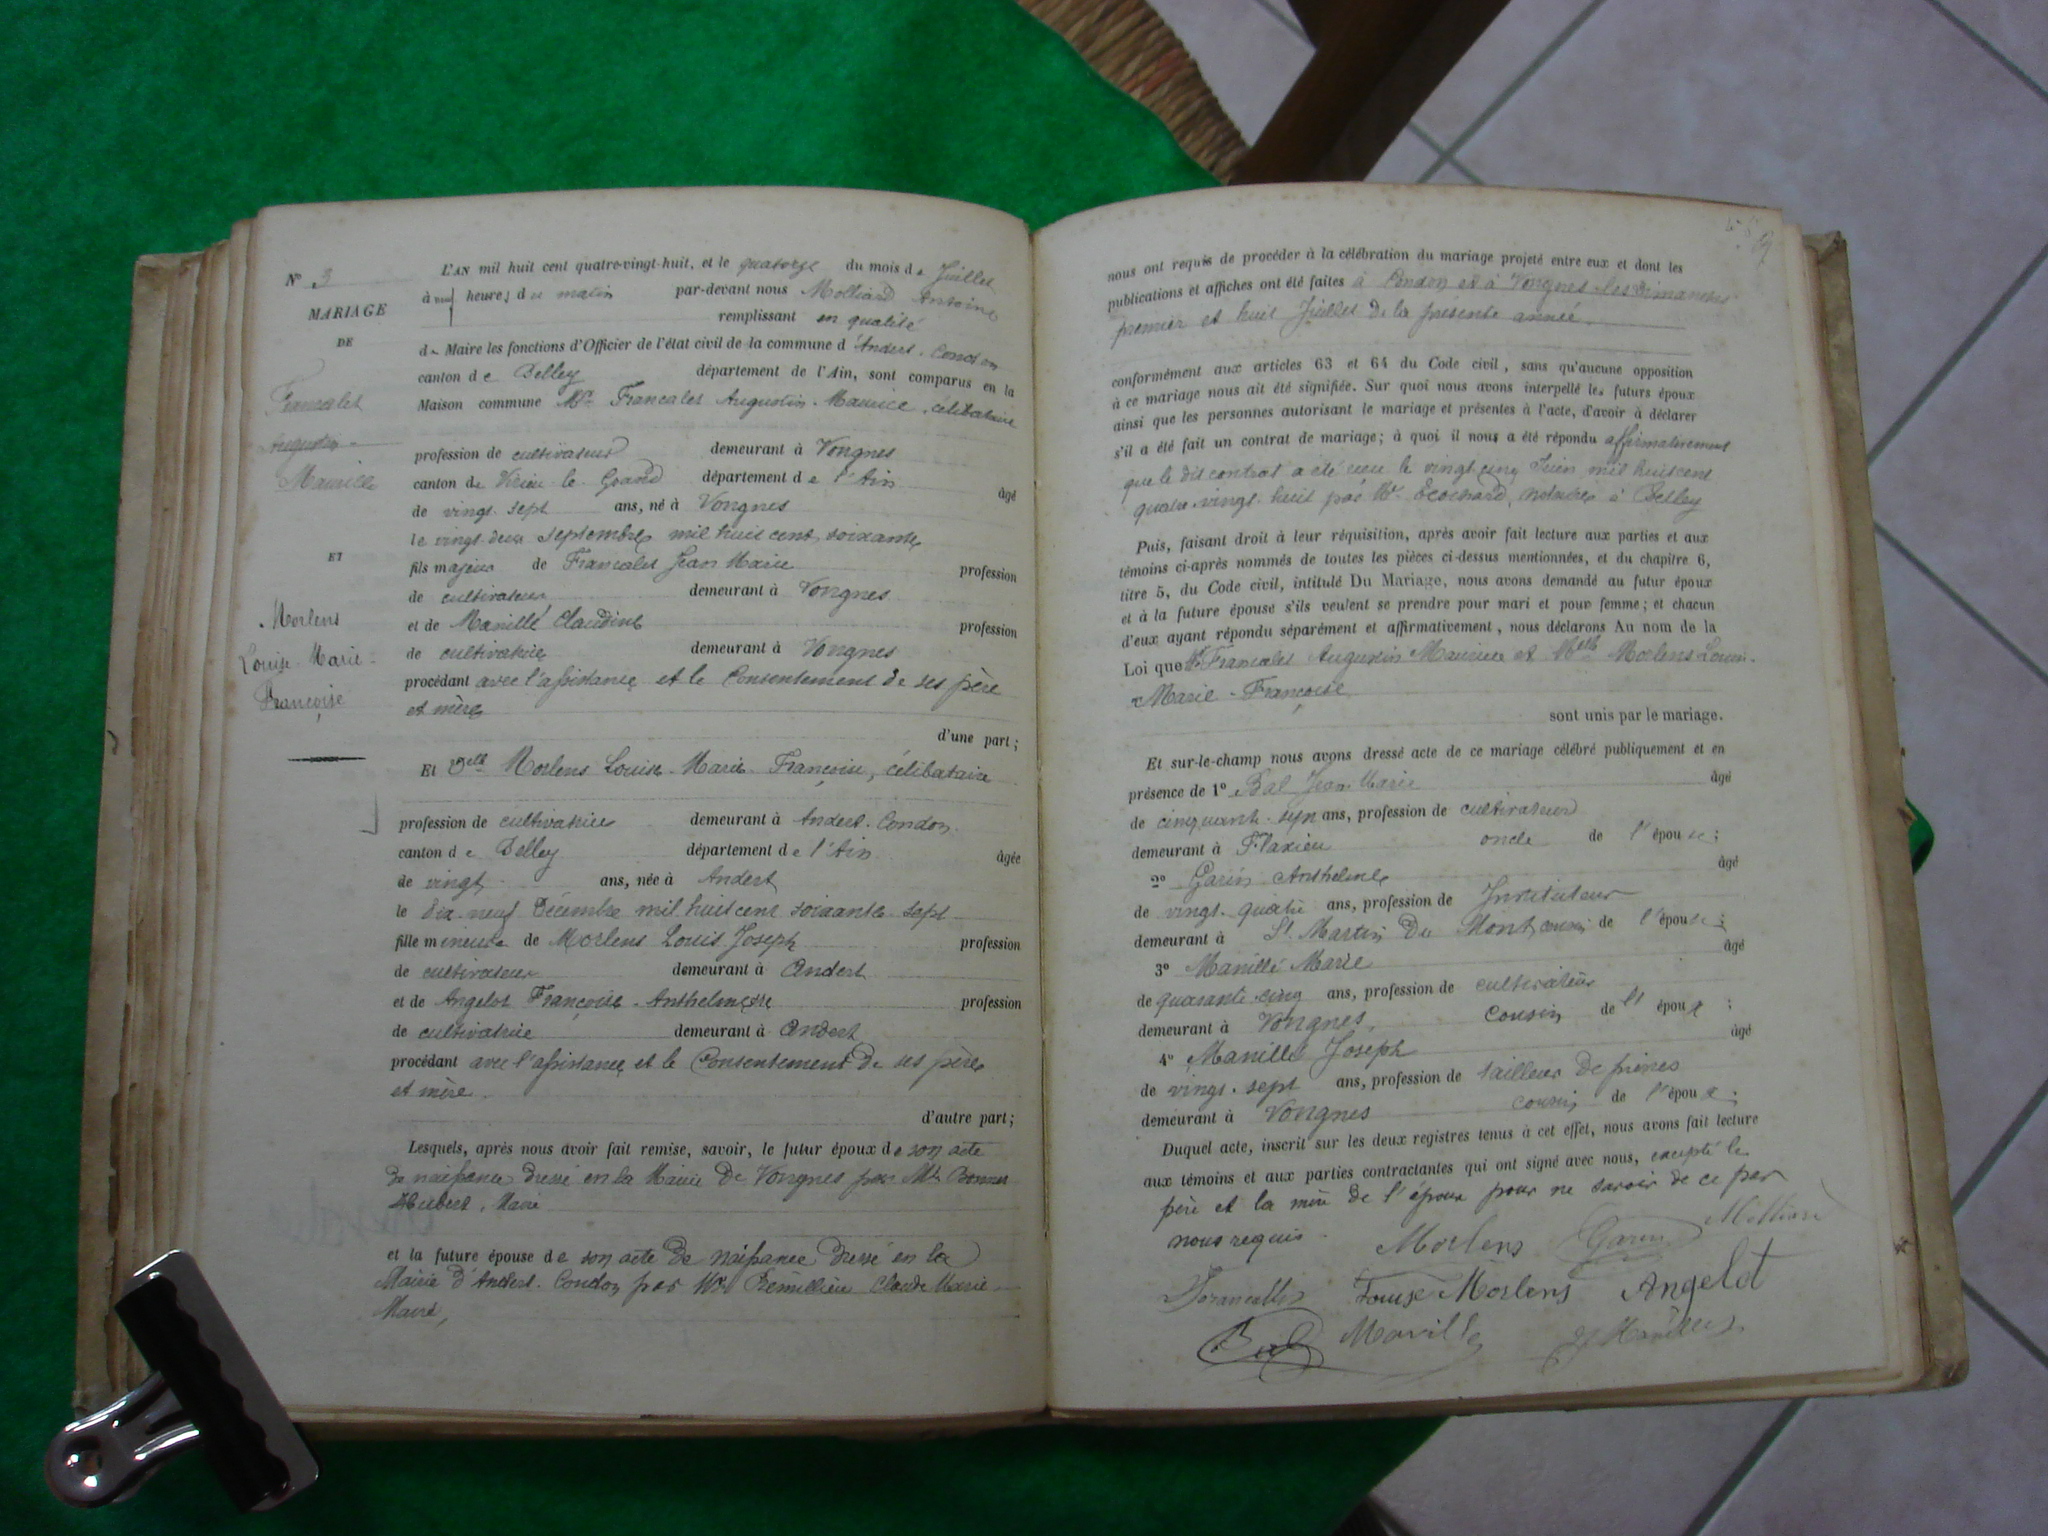 N° 3
MARIAGE
DE
Francalet
Augustin
Maurille
ET
Morlens
Louise Marie
Françoise
L'AN mil huit cent quatre-vingt-huit, et le quatorze du mois de Juillet
à heures du matin par-devant nous Molliard Antoine
remplissant en qualité
de Maire les fonctions d'Officier de l'état civil de la commune d'Andert-Condon
canton de Belley département de l'Ain, sont comparus en la
Maison commune Mr Francalet Augustin Maurice, célibataire
profession de cultivateur demeurant à Vongnes
canton de Virieu-le-Grand département de l'Ain âgé
de vingt-sept ans, né à Vongnes
le vingt-deux septembre mil huit cent soixante
fils majeur de Francalet Jean Marie profession
de cultivateur demeurant à Vongnes
et de Manillé Claudine profession
de cultivatrice demeurant à Vongnes
procédant avec l'assistance et le Consentement de ses père
et mère
d'une part;
Et Delle Morlens Louise Marie Françoise, célibataire
profession de cultivatrice demeurant à Andert-Condon
canton de Belley département de l'Ain âgée
de vingt ans, née à Andert
le dix-neuf Décembre mil huit cent soixante-sept
fille mineure de Morlens Louis Joseph profession
de cultivateur demeurant à Andert
et de Angelot Françoise Anthelmette profession
de cultivatrice demeurant à Andert
procédant avec l'assistance et le Consentement de ses père
et mère.
d'autre part;
Lesquels, après nous avoir fait remise, savoir, le futur époux de son acte
de naissance dressé en la Mairie de Vongnes par Mr Bonnet
Hubert, Maire
et la future épouse de son acte de naissance dressé en la
Mairie d'Andert-Condon par Mr Claude Marie
Maire,
nous ont requis de procéder à la célébration du mariage projeté entre eux et dont les
publications et affiches ont été faites à Condon et à Vongnes les Dimanches
premier et huit Juillet de la présente année.
conformément aux articles 63 et 64 du Code civil, sans qu'aucune opposition
à ce mariage nous ait été signifiée. Sur quoi nous avons interpellé les futurs époux
ainsi que les personnes autorisant le mariage et présentes à l'acte, d'avoir à déclarer
s'il a été fait un contrat de mariage; à quoi il nous a été répondu affirmativement
que le dit contrat a été reçu le vingt-cinq Juin mil huit cent
quatre-vingt-huit par Mr Ecochard, notaire à Belley
Puis, faisant droit à leur réquisition, après avoir fait lecture aux parties et aux
témoins ci-après nommés de toutes les pièces ci-dessus mentionnées, et du chapitre 6,
titre 5, du Code civil, intitulé Du Mariage, nous avons demandé au futur époux
et à la future épouse s'ils veulent se prendre pour mari et pour femme; et chacun
d'eux ayant répondu séparément et affirmativement, nous déclarons Au nom de la
Loi que Mr Francalet Augustin Maurice et Melle Morlens Louise
Marie Françoise
sont unis par le mariage.
Et sur-le-champ nous avons dressé acte de ce mariage célébré publiquement et en
présence de 1° Bal Jean Marie âgé
de cinquante-sept ans, profession de cultivateur
demeurant à Flaxieu oncle de l'épouse;
2° Garin Anthelme âgé
de vingt-quatre ans, profession de Instituteur
demeurant à St Martin du Mont cousin de l'épouse;
3° Manillé Marie âgé
de quarante-cinq ans, profession de cultivateur
demeurant à Vongnes, cousin de l'époux;
4° Manillé Joseph âgé
de vingt-sept ans, profession de tailleur de pierres
demeurant à Vongnes cousin de l'époux;
Duquel acte, inscrit sur les deux registres tenus à cet effet, nous avons fait lecture
aux témoins et aux parties contractantes qui ont signé avec nous, excepté le
père et la mère de l'époux pour ne savoir de ce par
nous requis.
Morlens Garin Molliard
Francallet Louise Morlens Angelot
Bal Manillé J Manillé